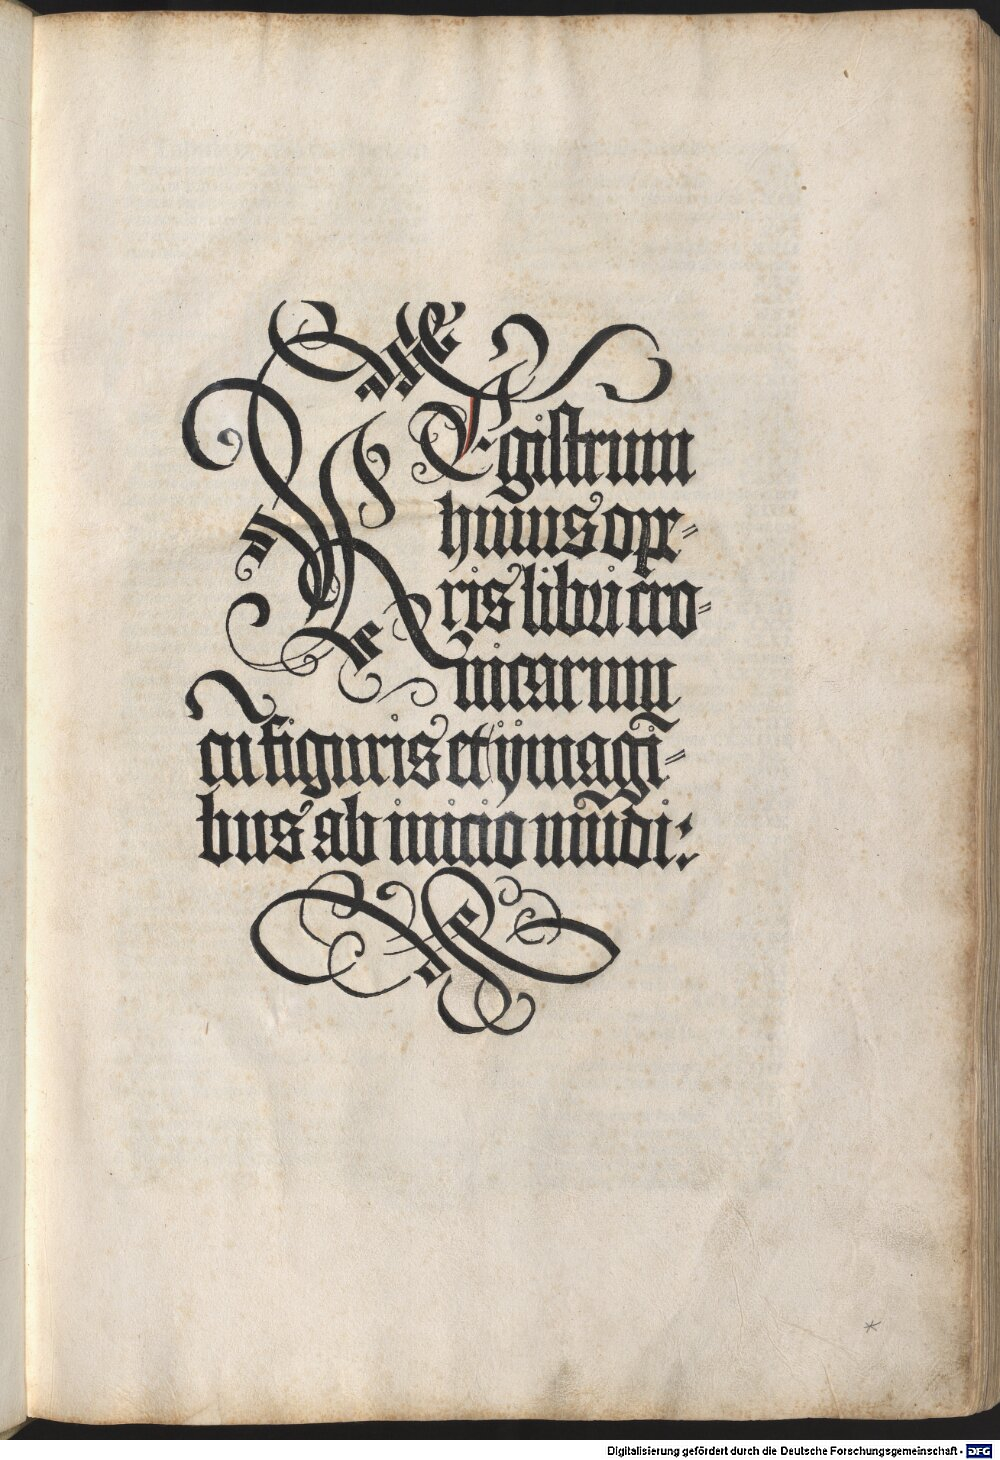 REgistrum
huius ope=
ris libri cro=
nicarum
cū figuris et ijmagī=
bus ab inicio mūdi:
*
Digitalisierung gefördert durch die Deutsche Forschungsgemeinschaft - DFG